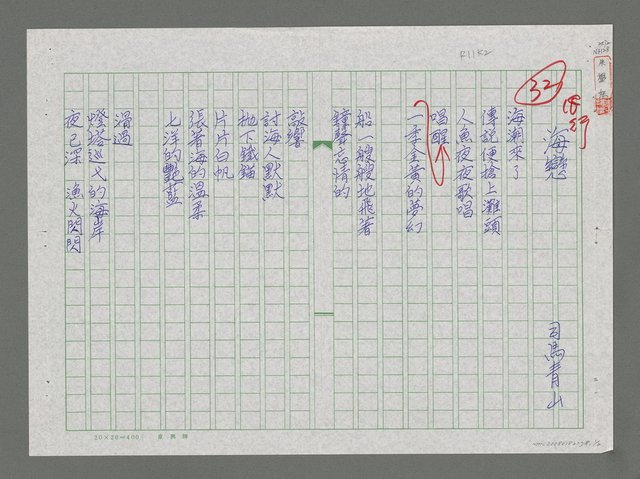 R11R2
32
海戀
司馬青山
海潮來了
傳說便搶上灘頭
人魚夜夜歌唱
唱醒
一季金黃的夢幻
船一艘艘地飛著
鐘聲忘情的
敲響
討海人默默
拋下鐵錨
片片白帆
張著海的溫柔
七洋的艷藍
滑過
燈塔巡弋的海岸
夜已深 漁火閃閃
20×20=400